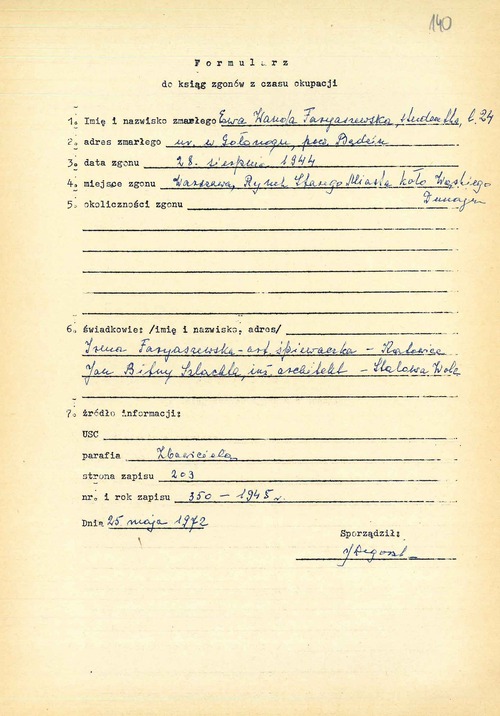 140
Formularz
do ksiąg zgonów z czasu okupacji
1. Imię i nazwisko zmarłego Ewa Wanda Faryaszewska, studentka, l. 24
2. adres zmarłego ur. w Gołonogu, pow. Będzin
3. data zgonu 28. sierpnia 1944
4. miejsce zgonu Warszawa, Rynek Starego Miasta koło Wąskiego
Dunaju
5. okoliczności zgonu
6. świadkowie: /imię i nazwisko, adres/
Irena Faryaszewska - art. śpiewaczka - Katowice
Jan Bitny Szlachta, inż. architekt - Stalowa Wola
7. źródło informacji:
USC
parafia Zbawiciela
strona zapisu 203
nr. i rok zapisu 350 - 1945 r.
Dnia 25 maja 1972
Sporządził: